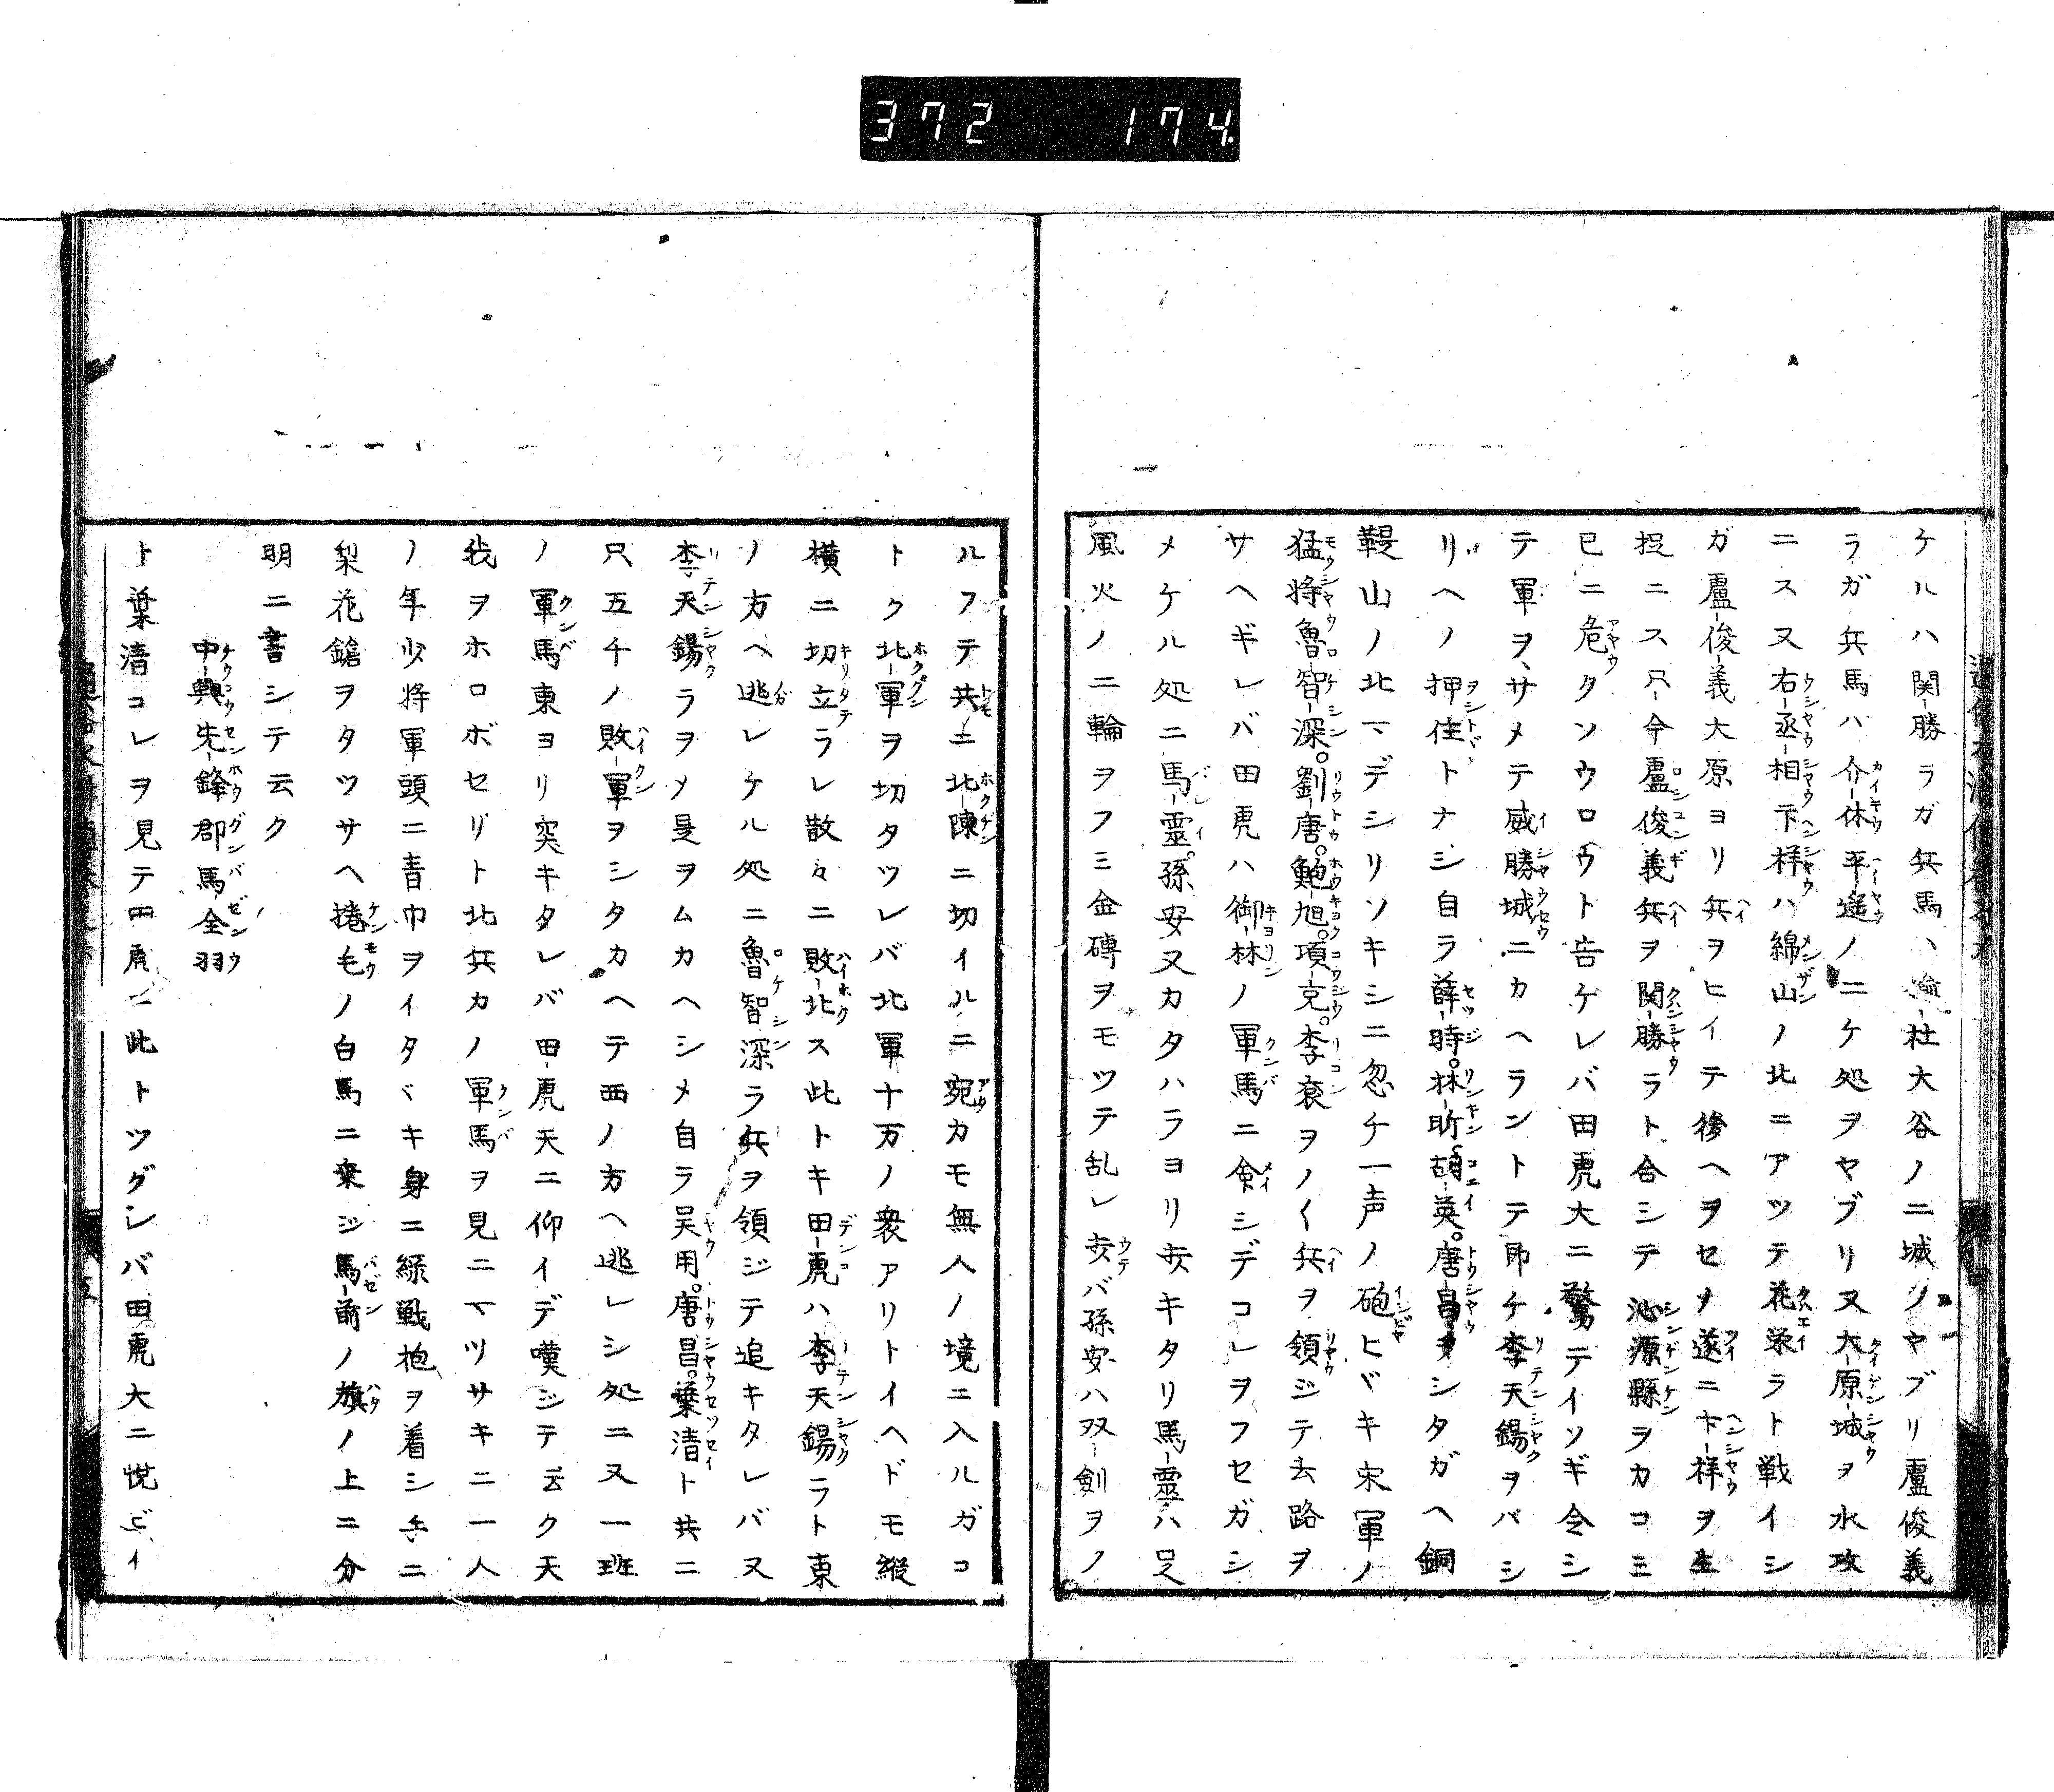 372 174
ケルハ関勝ラガ兵馬ハ渝杜大谷ノ二城ヲヤブリ盧俊義
ラガ兵馬ハ介休平遥ノ二ケ処ヲヤブリ又大原城ヲ水攻
ニス又右丞相卞祥ハ綿山ノ北ニアツテ花栄ラト戦イシ
ガ盧俊義大原ヨリ兵ヲヒイテ後ヘヲセメ遂ニ卞祥ヲ生
捉ニス只今盧俊義兵ヲ関勝ラト合シテ沁源縣ヲカコミ
已ニ危クソウロウト告ケレバ田虎大ニ驚テイソギ令シ
テ軍ヲヽサメテ威勝城ニカヘラントテ即チ李天錫ヲバシ
リヘノ押住トナシ自ラ薛時。林昕。胡英。唐昌ヲシタガヘ銅
鞮山ノ北マデシリソキシニ忽チ一声ノ砲ヒヾキ宋軍ノ
猛将魯智深。劉唐。鮑旭。項充。李袞ヲノ〱兵ヲ領ジテ去路ヲ
サヘギレバ田虎ハ御林ノ軍馬ニ命シデコレヲフセガシ
メケル処ニ馬霊。孫安又カタハラヨリ突キタリ馬霊ハ足
風火ノ二輪ヲフミ金磚ヲモツテ乱レ
バ孫安ハ双剣ヲノ
ルフテ共ニ北陳ニ切イルニ宛カモ無人ノ境ニ入ルガコ
トク北軍ヲ切タツレバ北軍十万ノ衆アリトイヘドモ縦
横ニ切立ラレ散々ニ敗北ス此トキ田虎ハ李天錫ラト東
ノ方ヘ逃レケル処ニ魯智深ラ兵ヲ領ジテ追キタレバ又
李天錫ラヲメ是ヲムカヘシメ自ラ吴用。唐昌。葉清ト共ニ
只五千ノ敗軍ヲシタカヘテ西ノ方ヘ逃レシ処ニ又一班
ノ軍馬東ヨリ突キタレバ田虎天ニ仰イデ嘆ジテ云ク天
我ヲホロボセリト北兵カノ軍馬ヲ見ニマツサキニ一人
ノ年少将軍頭ニ青巾ヲイタヾキ身ニ緑戦袍ヲ着シ手ニ
梨花鎗ヲタツサヘ捲毛ノ白馬ニ乗ジ馬前ノ旗ノ上ニ分
明ニ書シテ云ク
中興先鋒郡馬全羽
ト葉清コレヲ見テ田虎ニ此トツグレバ田虎大ニ悦ビイ